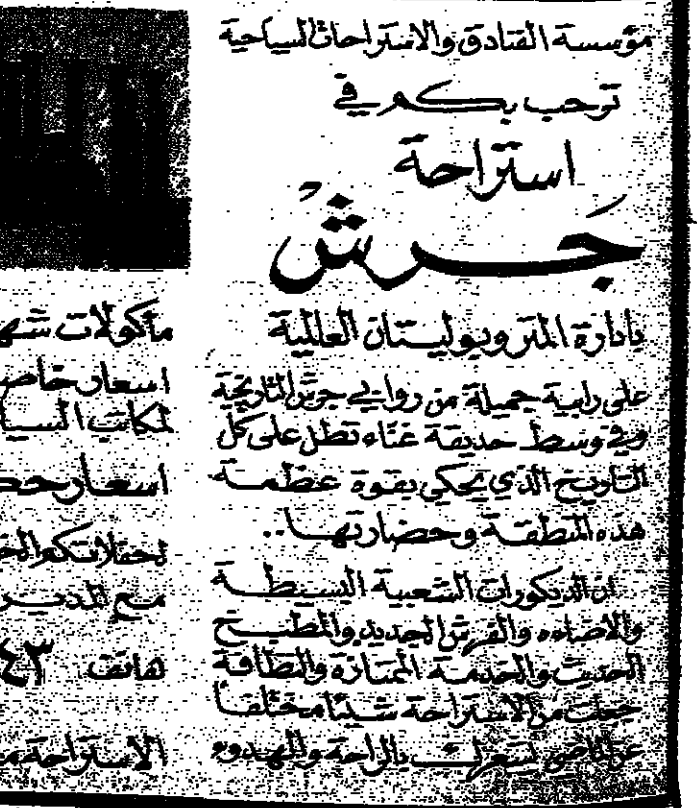 مؤسسة الفنادق والاستراحات السياحية
ترحب بكم في
استراحة
جرش
بادارة المتروبوليتان العالمية
على رابية جميلة من روابي جرش التاريخية
وفي وسط حديقة غناء تطل على كل
التاريخ الذي يحكي بقوة عظمة
هذه المنطقة وحضارتها..
ان الديكورات الشعبية البسيطة
والاضاءه والفرش الجديد والمطبخ
الحديث والخدمة الممتازة والنظافة
جعلت من الاستراحة شيئا مختلفا
عن الماضي بالراحة والهدوء
مأكولات
اسعار خاص
لمكاتب السيا
اسعار
لحفلاتكم
مع المدير
هاتف ٤٣
الاستراحة